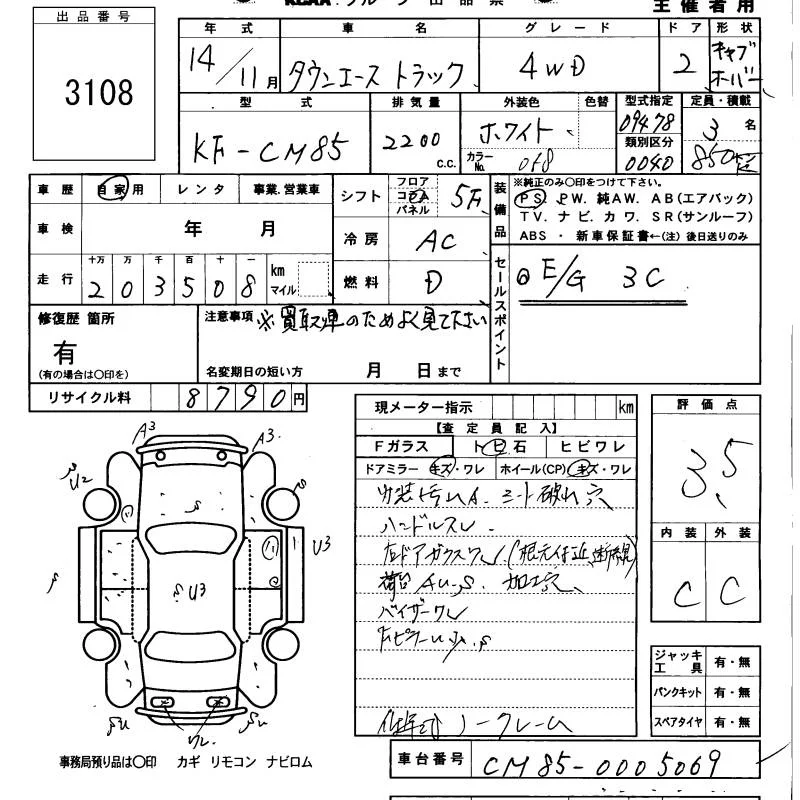 出品番号
主催者用
3108
年式 車名 グレード ドア 形状
14/11月 タウンエース トラック 4WD 2 キャブオーバー
型式 排気量 外装色 色替 型式指定 定員・積載
KF-CM85 2200 c.c. ホワイト 09478 3名
カラーNo. 類別区分 0040 850
車歴 自家用 レンタ 事業.営業車
シフト フロア コラム パネル 5F
装備品
※純正のみ○印をつけて下さい。
PS. PW. 純AW. AB(エアバック)
TV. ナビ. カワ. SR(サンルーフ)
ABS ・ 新車保証書←(注) 後日送りのみ
車検 年 月
冷房 AC
走行 十万 万 千 百 十 一
203508 km マイル
燃料 D
セールスポイント
E/G 3C
修復歴 箇所
有
(有の場合は○印を)
注意事項 ※買取車のためよく見て下さい
名変期日の短い方 月 日まで
リサイクル料 8790円
現メーター指示 km
【査定員記入】
Fガラス トビ石 ヒビワレ
ドアミラー キズ・ワレ ホイール(CP) キズ・ワレ
内装
ハンドルスレ
荷台 加工穴
バイザーワレ
ノークレーム
評価点
3.5
内装 外装
C C
ジャッキ工具 有・無
パンクキット 有・無
スペアタイヤ 有・無
A3 A3
U2
U3
U3
ワレ
事務局預り品は○印 カギ リモコン ナビロム
車台番号 CM85-0005069